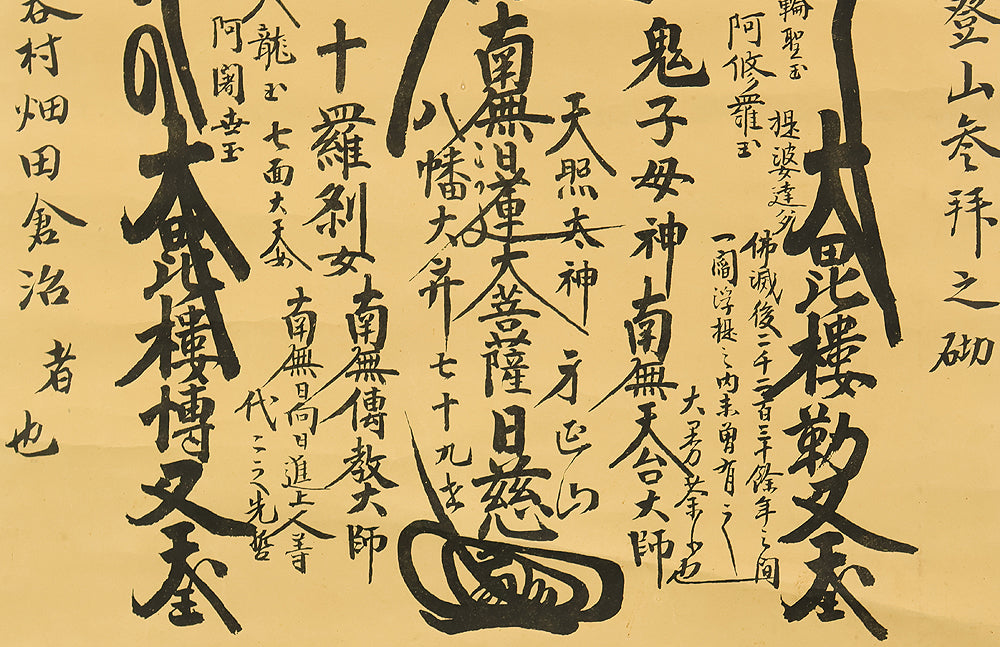 登山参拜之砌
輪聖王
大毘樓勒叉天王
提婆達多
阿修羅王
佛滅後二千二百三十餘年之間
一閻浮提之内未曾有之
大曼荼羅也
鬼子母神
南無天台大師
天照太神
身延山
南無日蓮大菩薩
日慈
八幡大菩薩
七十九世
十羅刹女
南無傳教大師
龍王
七面大天女
南無日向日進上人等
代々之先哲
阿闍世王
大毘樓博叉天王
谷村畑田倉治
者也